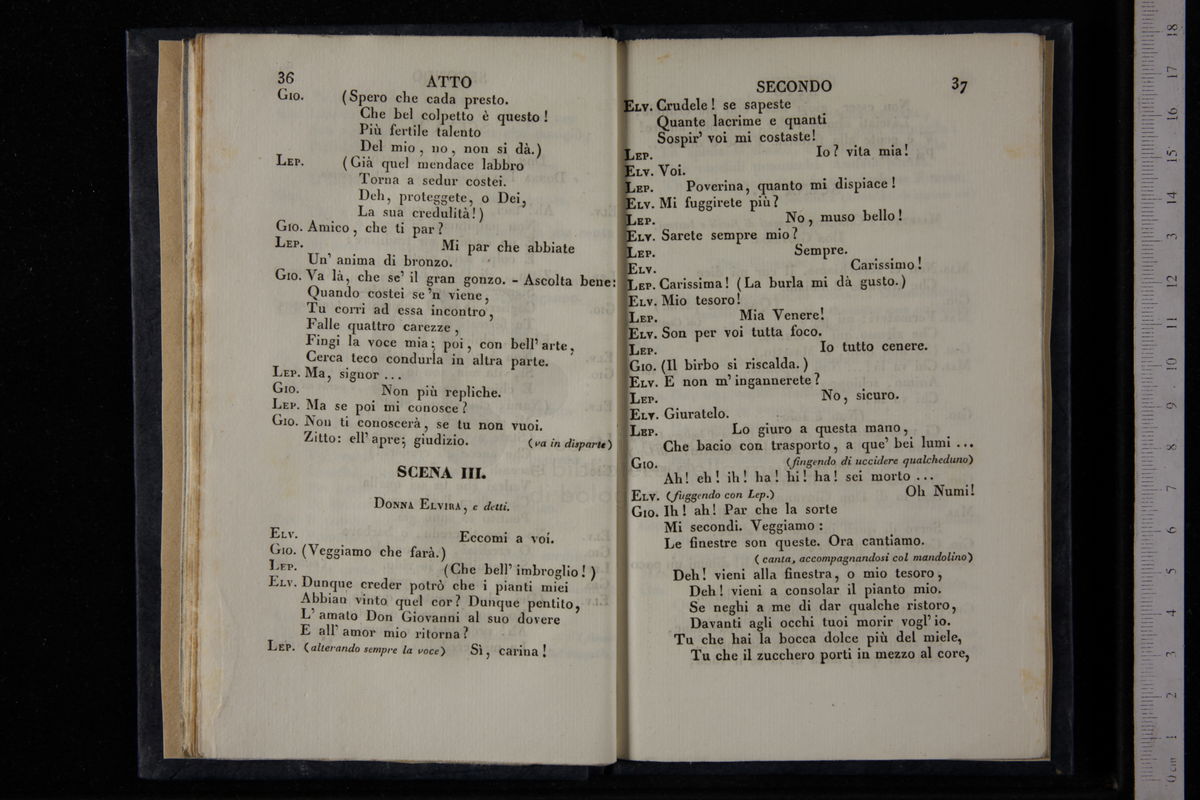 36 ATTO
Gio. (Spero che cada presto.
Che bel colpetto è questo!
Più fertile talento
Del mio, no, non si dà.)
Lep. (Già quel mendace labbro
Torna a sedur costei.
Deh, proteggete, o Dei,
La sua credulità!)
Gio. Amico, che ti par?
Lep. Mi par che abbiate
Un' anima di bronzo.
Gio. Va là, che se' il gran gonzo. - Ascolta bene:
Quando costei se 'n viene,
Tu corri ad essa incontro,
Falle quattro carezze,
Fingi la voce mia; poi, con bell' arte,
Cerca teco condurla in altra parte.
Lep. Ma, signor ...
Gio. Non più repliche.
Lep. Ma se poi mi conosce?
Gio. Non ti conoscerà, se tu non vuoi.
Zitto: ell' apre; giudizio. (va in disparte)
SCENA III.
Donna Elvira, e detti.
Elv. Eccomi a voi.
Gio. (Veggiamo che farà.)
Lep. (Che bell' imbroglio!)
Elv. Dunque creder potrò che i pianti miei
Abbian vinto quel cor? Dunque pentito,
L' amato Don Giovanni al suo dovere
E all' amor mio ritorna?
Lep. (alterando sempre la voce) Sì, carina!
SECONDO 37
Elv. Crudele! se sapeste
Quante lacrime e quanti
Sospir' voi mi costaste!
Lep. Io? vita mia!
Elv. Voi.
Lep. Poverina, quanto mi dispiace!
Elv. Mi fuggirete più?
Lep. No, muso bello!
Elv. Sarete sempre mio?
Lep. Sempre.
Elv. Carissimo!
Lep. Carissima! (La burla mi dà gusto.)
Elv. Mio tesoro!
Lep. Mia Venere!
Elv. Son per voi tutta foco.
Lep. Io tutto cenere.
Gio. (Il birbo si riscalda.)
Elv. E non m' ingannerete?
Lep. No, sicuro.
Elv. Giuratelo.
Lep. Lo giuro a questa mano,
Che bacio con trasporto, a que' bei lumi ...
Gio. (fingendo di uccidere qualcheduno)
Ah! eh! ih! ha! hi! ha! sei morto ...
Elv. (fuggendo con Lep.) Oh Numi!
Gio. Ih! ah! Par che la sorte
Mi secondi. Veggiamo:
Le finestre son queste. Ora cantiamo.
(canta, accompagnandosi col mandolino)
Deh! vieni alla finestra, o mio tesoro,
Deh! vieni a consolar il pianto mio.
Se neghi a me di dar qualche ristoro,
Davanti agli occhi tuoi morir vogl' io.
Tu che hai la bocca dolce più del miele,
Tu che il zucchero porti in mezzo al core,